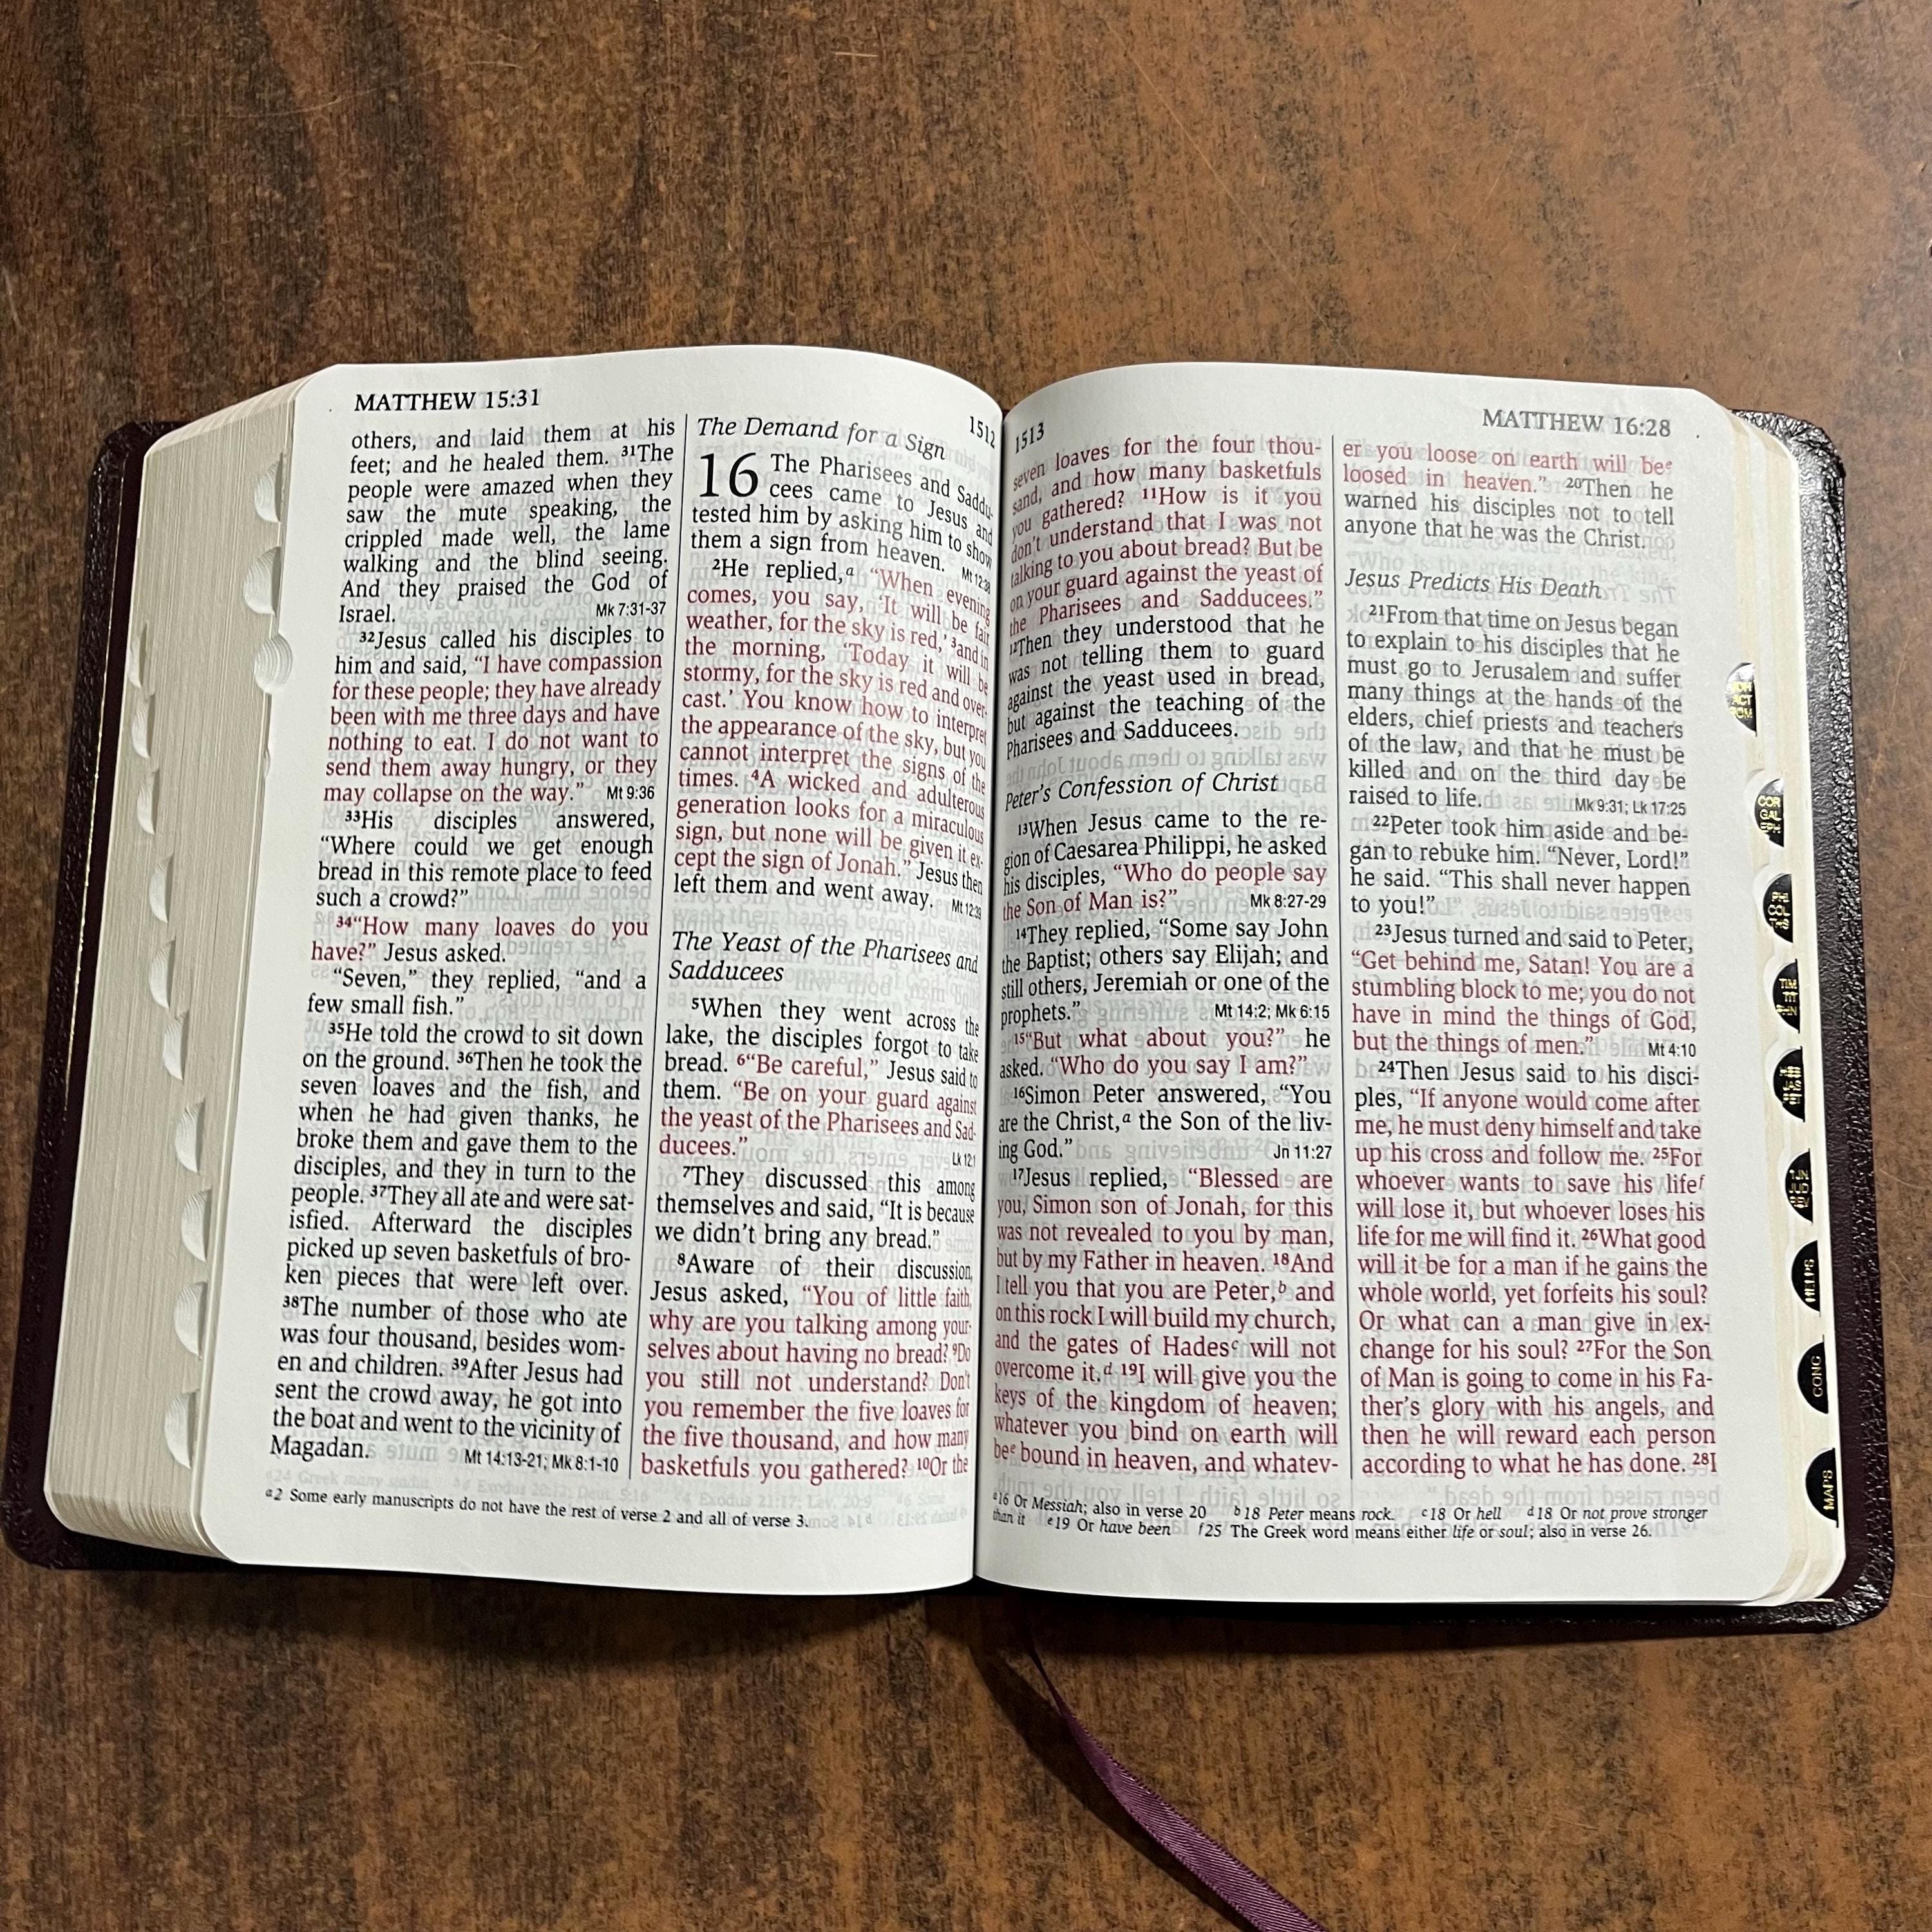 MATTHEW 15:31
1512
others, and laid them at his
feet; and he healed them. 31The
people were amazed when they
saw the mute speaking, the
crippled made well, the lame
walking and the blind seeing.
And they praised the God of
Israel. Mk 7:31-37
32Jesus called his disciples to
him and said, “I have compassion
for these people; they have already
been with me three days and have
nothing to eat. I do not want to
send them away hungry, or they
may collapse on the way.” Mt 9:36
33His disciples answered,
“Where could we get enough
bread in this remote place to feed
such a crowd?”
34“How many loaves do you
have?” Jesus asked.
“Seven,” they replied, “and a
few small fish.”
35He told the crowd to sit down
on the ground. 36Then he took the
seven loaves and the fish, and
when he had given thanks, he
broke them and gave them to the
disciples, and they in turn to the
people. 37They all ate and were sat-
isfied. Afterward the disciples
picked up seven basketfuls of bro-
ken pieces that were left over.
38The number of those who ate
was four thousand, besides wom-
en and children. 39After Jesus had
sent the crowd away, he got into
the boat and went to the vicinity of
Magadan. Mt 14:13-21; Mk 8:1-10
The Demand for a Sign
16 The Pharisees and Saddu-
cees came to Jesus and
tested him by asking him to show
them a sign from heaven. Mt 12:38
2He replied,a “When evening
comes, you say, ‘It will be fair
weather, for the sky is red,’ 3and in
the morning, ‘Today it will be
stormy, for the sky is red and over-
cast.’ You know how to interpret
the appearance of the sky, but you
cannot interpret the signs of the
times. 4A wicked and adulterous
generation looks for a miraculous
sign, but none will be given it ex-
cept the sign of Jonah.” Jesus then
left them and went away. Mt 12:39
The Yeast of the Pharisees and
Sadducees
5When they went across the
lake, the disciples forgot to take
bread. 6“Be careful,” Jesus said to
them. “Be on your guard against
the yeast of the Pharisees and Sad-
ducees.” Lk 12:1
7They discussed this among
themselves and said, “It is because
we didn’t bring any bread.”
8Aware of their discussion,
Jesus asked, “You of little faith,
why are you talking among your-
selves about having no bread? 9Do
you still not understand? Don’t
you remember the five loaves for
the five thousand, and how many
basketfuls you gathered? 10Or the
a2 Some early manuscripts do not have the rest of verse 2 and all of verse 3.
1513
MATTHEW 16:28
seven loaves for the four thou-
sand, and how many basketfuls
you gathered? 11How is it you
don’t understand that I was not
talking to you about bread? But be
on your guard against the yeast of
the Pharisees and Sadducees.”
12Then they understood that he
was not telling them to guard
against the yeast used in bread,
but against the teaching of the
Pharisees and Sadducees.
Peter’s Confession of Christ
13When Jesus came to the re-
gion of Caesarea Philippi, he asked
his disciples, “Who do people say
the Son of Man is?” Mk 8:27-29
14They replied, “Some say John
the Baptist; others say Elijah; and
still others, Jeremiah or one of the
prophets.” Mt 14:2; Mk 6:15
15“But what about you?” he
asked. “Who do you say I am?”
16Simon Peter answered, “You
are the Christ,a the Son of the liv-
ing God.” Jn 11:27
17Jesus replied, “Blessed are
you, Simon son of Jonah, for this
was not revealed to you by man,
but by my Father in heaven. 18And
I tell you that you are Peter,b and
on this rock I will build my church,
and the gates of Hadesc will not
overcome it.d 19I will give you the
keys of the kingdom of heaven;
whatever you bind on earth will
bee bound in heaven, and whatev-
er you loose on earth will bee
loosed in heaven.” 20Then he
warned his disciples not to tell
anyone that he was the Christ.
Jesus Predicts His Death
21From that time on Jesus began
to explain to his disciples that he
must go to Jerusalem and suffer
many things at the hands of the
elders, chief priests and teachers
of the law, and that he must be
killed and on the third day be
raised to life. Mk 9:31; Lk 17:25
22Peter took him aside and be-
gan to rebuke him. “Never, Lord!”
he said. “This shall never happen
to you!”
23Jesus turned and said to Peter,
“Get behind me, Satan! You are a
stumbling block to me; you do not
have in mind the things of God,
but the things of men.” Mt 4:10
24Then Jesus said to his disci-
ples, “If anyone would come after
me, he must deny himself and take
up his cross and follow me. 25For
whoever wants to save his lifef
will lose it, but whoever loses his
life for me will find it. 26What good
will it be for a man if he gains the
whole world, yet forfeits his soul?
Or what can a man give in ex-
change for his soul? 27For the Son
of Man is going to come in his Fa-
ther’s glory with his angels, and
then he will reward each person
according to what he has done. 28I
a16 Or Messiah; also in verse 20 b18 Peter means rock. c18 Or hell d18 Or not prove stronger
than it e19 Or have been f25 The Greek word means either life or soul; also in verse 26.
ACT
COR
GAL
EPH
PHI
COL
THS
TIM
TIT
JAS
JUD
REV
HELPS
CONC
MAPS